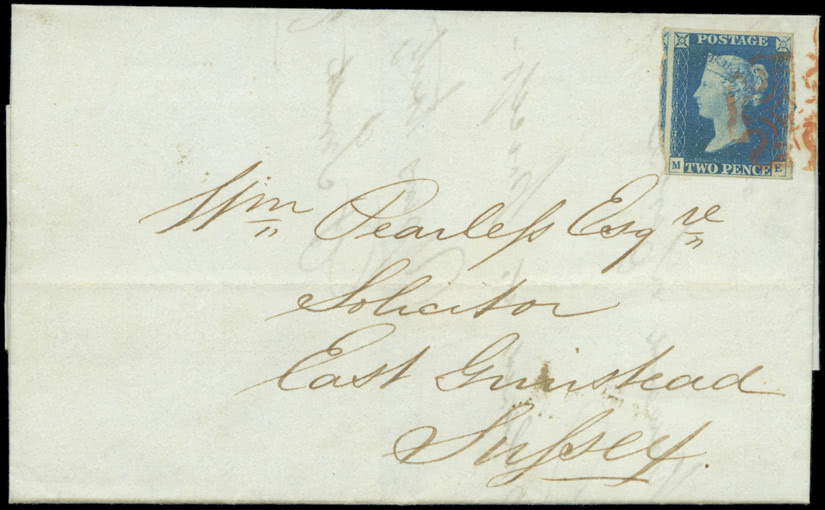 POSTAGE
M E
TWO PENCE
Wm Pearless Esqre
Solicitor
East Grinstead
Sussex.